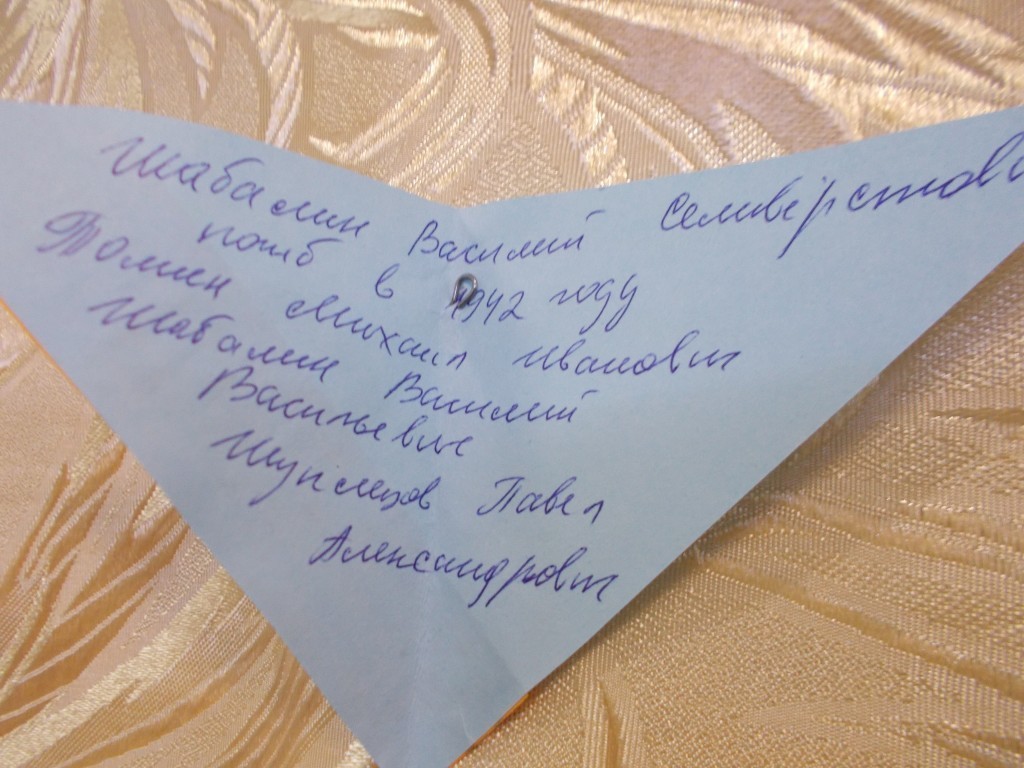 Шабалин Василий Селивёрстов
погиб в 1942 году
Томин Михаил Иванович
Шабалин Василий
Васильевич
Павел
Александрович